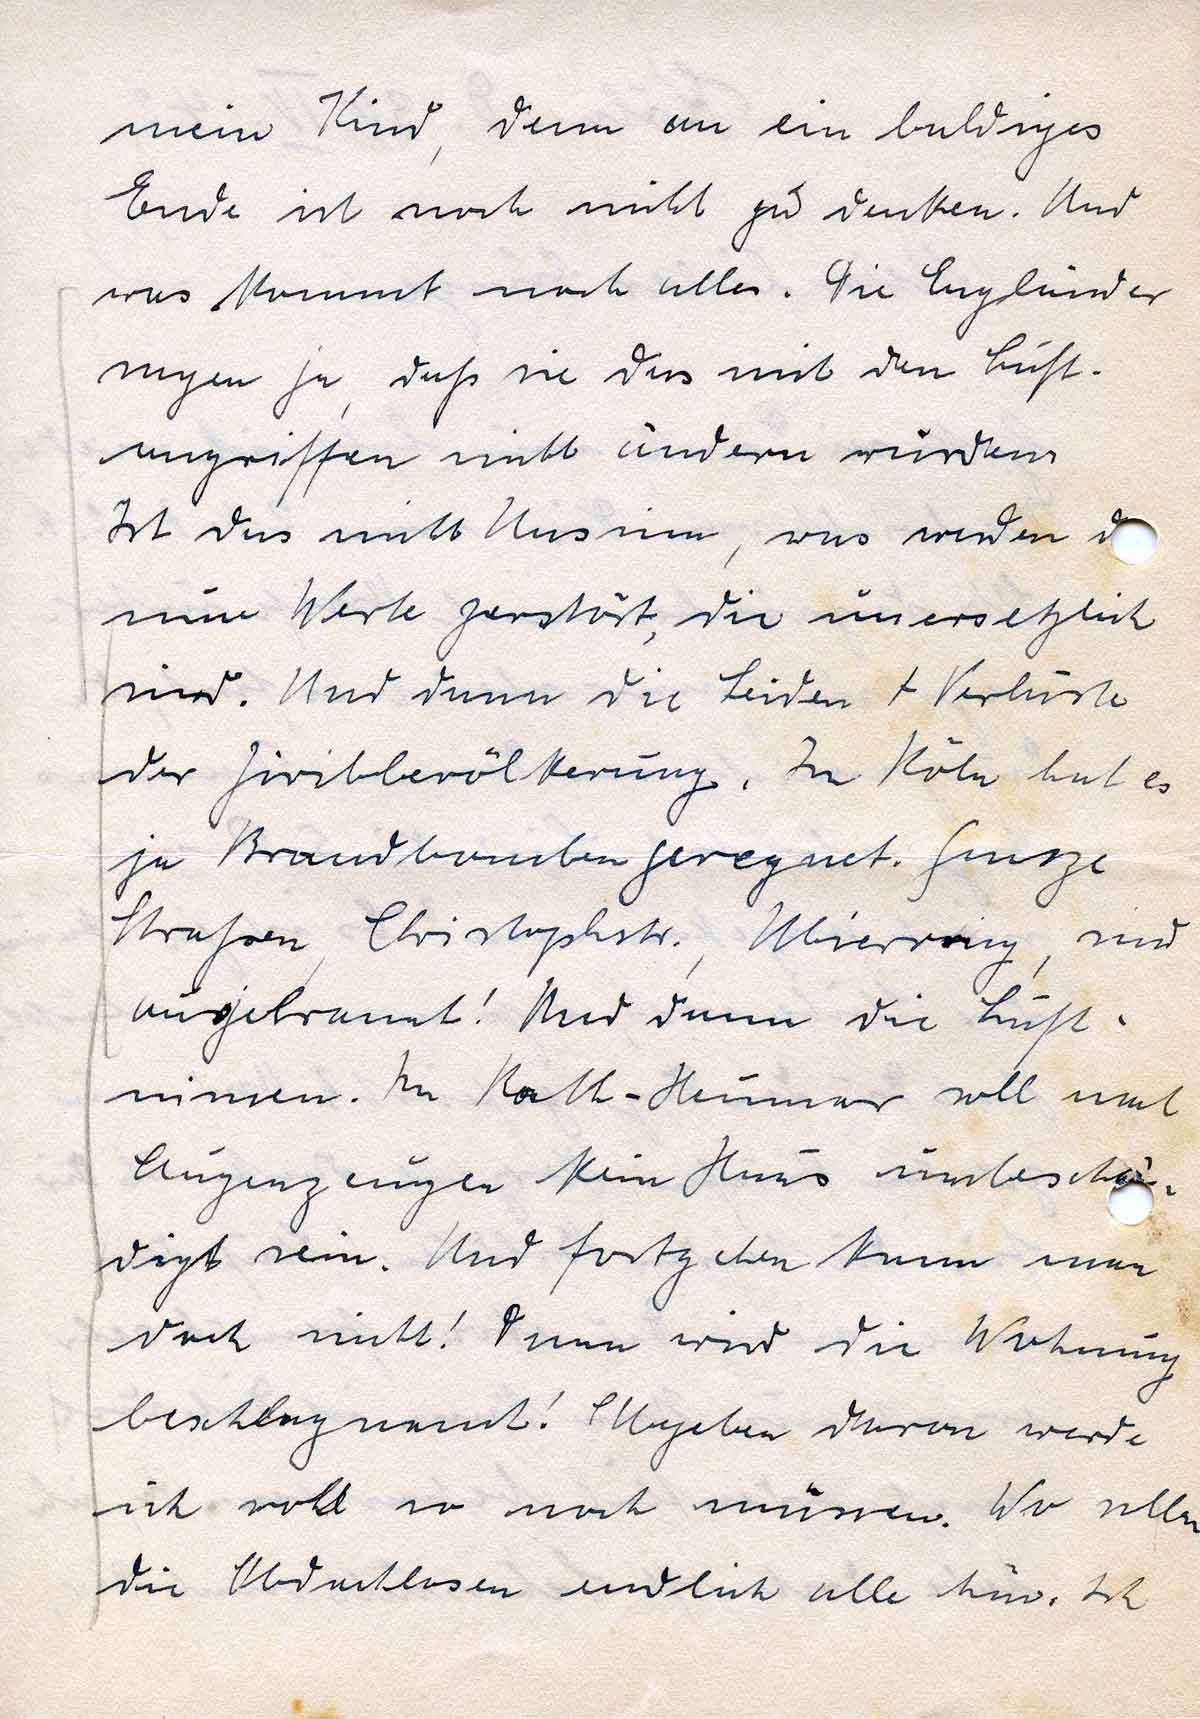 mein Kind, denn an ein baldiges
Ende ist noch nicht zu denken. Und
was kommt noch alles. Die Engländer
sagen ja, daß sie das mit den Luft-
angriffen nicht ändern würden
Ist das nicht Unsinn, was werden da
nun Werte zerstört, die unersetzlich
sind. Und dann die Leiden + Verluste
der Zivilbevölkerung. In Köln hat es
ja Brandbomben geregnet. Ganze
Straßen, Christophstr., Ubierring, sind
ausgebrannt! Und dann die Luft-
minen. In Rath-Heumar soll nach
Augenzeugen kein Haus unbeschä-
digt sein. Und fortgehen kann man
doch nicht! Dann wird die Wohnung
beschlagnamt! Abgeben davon werde
ich wohl so noch müssen. Wo sollen
die Obdachlosen endlich alle hin. Ich